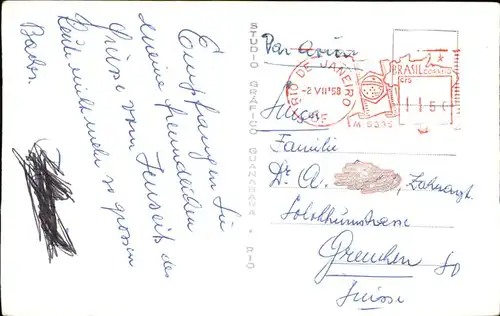 Empfangen Sie
meine freundlichen
Grüsse vom Jenseits des
nicht mehr so grossen
Baches.
STUDIO GRÁFICO GUANABARA * RIO
Par avion
RIO DE JANEIRO
-2 VII 58
DF
BRASIL CORREIO
CR$
11 50
M 5035
Suiça
Familie
Dr. A. Zahnarzt
Solothurnstrasse
Grenchen So
Suisse